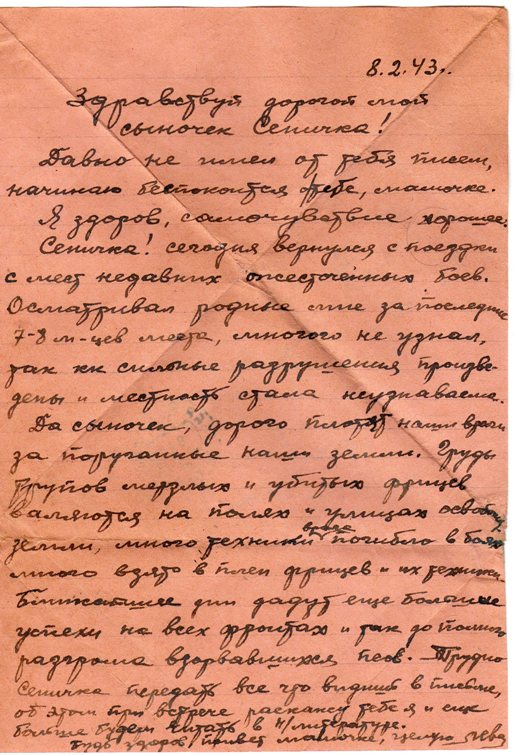 8.2.43г.
Здравствуй дорогой мой
сыночек Сеничка!
Давно не имел от тебя писем,
начинаю беспокоится о тебе, мамочке.
Я здоров, самочувствие хорошее.
Сеничка! сегодня вернулся с поездки
с мест недавних ожесточенных боев.
Осматривал родные мне за последние
7-8 м-цев места, многого не узнал,
так как сильные разрушения произве-
дены и местность стала неузнаваема.
Да сыночек, дорого платят наши враги
за поруганные наши земли. Груды
трупов мерзлых и убитых фрицев
валяются на полях и улицах освобожд.
земли, много техники врага погибло в боях
много взято в плен фрицев и их техники
Ближайшие дни дадут еще большие
успехи на всех фронтах и так до полного
разгрома взорвавшихся псов. Трудно
Сеничка передать все что видишь в письме,
об этом при встрече раскажу тебе и еще
больше будем читать в литературе.
Будь здоров, привет мамочке, целую Лева